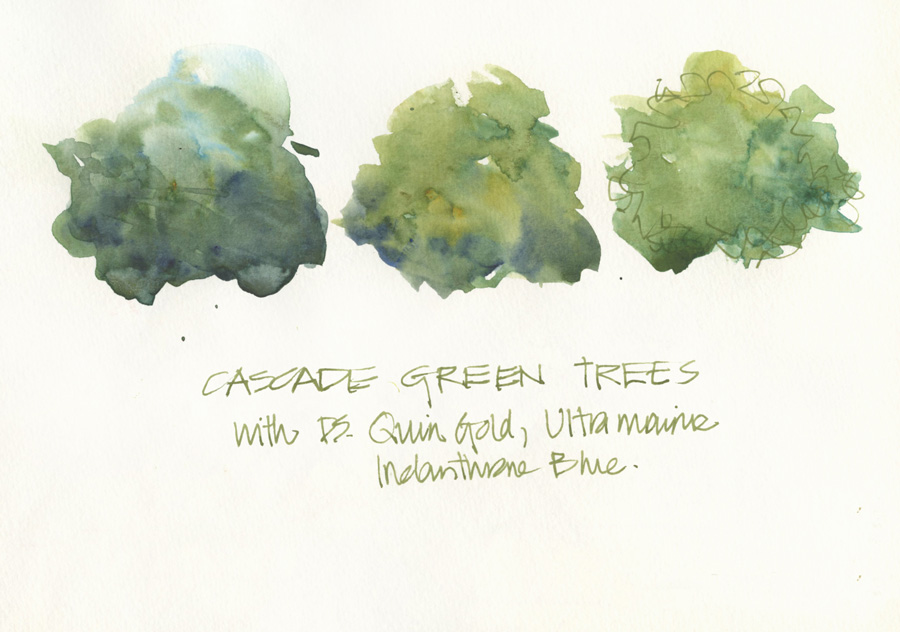 CASCADE GREEN TREES
with DS. Quin Gold, Ultramarine
Indanthrone Blue.